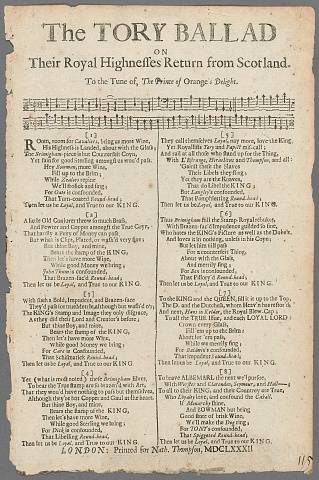 The TORY BALLAD
ON
Their Royal Highnesses Return from Scotland.
To the Tune of, The Prince of Orange's Delight.
[1]
ROom, room for Cavaliers, bring us more Wine,
His Highness is Landed, about with the Glass;
The Birmingham piece is but Counterfeit Coyn,
Yet
Hey Boyes, more Wine,
Fill up to the Brim;
While
We'll frolick and sing;
For Oate is confounded,
That Turn-coated Round-head;
Then let us be Loyal, and True to our KING.
[2]
A little Old Conjurer threw so much Brass,
And Pewter and Copper amongst the True Coyn,
That hardly a Piece of Money can pass,
But what is Clipt,
But thine Boy, and mine,
Bears the stamp of the KING,
Then let's have more Wine,
While good Money we bring;
John
That Brazen-fac'd Round-head;
Then let us be Loyal, and True to our KING.
[3]
With such a Bold, Impudent, and Brazen-face
They'd pass for true
The KING's Stamp and Image they only disgrace,
As they did their Lord and Creator's before;
But thine Boy, and mine,
Bears the stamp of the KING,
Then let's have more Wine,
While good Money we bring;
For Care is Confounded,
That Schismatick Round-head;
Then let us be Loyal, and True to our KING.
[4]
Yet (what is most noted) their Birmingham Elves,
To bear the True Stamp are so learned with Art,
That they wou'd have nothing to pass but themselves,
Although they're but Copper and
But thine Boy, and mine,
Bears the stamp of the KING,
Then let's have more Wine,
While good Sterling we bring;
For Dick is confounded,
That Libelling Round-head;
Then let us be Loyal, and True to our KING.
[5]
They call themselves Loyal, nay more, save the King,
Yet Royallists Tory and Papist miscall;
And rail at all those who stand up for the Thing,
With L'Estrange, Heraclitus and Thompson, and all:
'Gainst these the Slaves
Their Libels they fling;
Yet they are the Knaves,
That do Libel the KING;
But Langley's confounded,
That Engrossing Round-head;
Then let us be Loyal, and True to our KING.
[6]
Thus Birmingham still the Stamp Royal reduces,
With Brazen-fac'd Impudence guilded so fine,
Who hates the KING's Picture as well as the Dukes,
And loves it in nothing, unless in his Coyn:
But let him still pass
For a counterfeit Thing,
About with the Glass,
And merrily sing;
For Ben is confounded,
That Pillory'd Round-head;
Then let us be Loyal, and True to our KING.
[7]
To the KING and the QUEEN, fill it up to the Top,
The D. and the Dutchess, whom Heav'n has restor'd;
And next, Hans in Kelder, the Royal Blew-Cap;
As full as the TRUE Blue, and mark LOYAL LORD:
Crown every Glass,
Fill 'em up to the Brim:
About let 'em pass,
While we merrily sing;
For is confounded,
That impudent Round-head;
Then let us be Loyal, and True to our KING.
[8]
To brave ALBEMARLE the next we'l pursue,
With Worster and Clarendon, Seymour, and
To all to their KING, and their Countrey are True,
Who Loyalty love, and confound the Cabal:
If Monarchy shine,
And BOWMAN but bring
Good store of brisk Wine,
We'll make the Dog ring;
For TONY's confounded,
That Spiggotted Round-head;
Then let us be Loyal, and True to our KING.
LONDON: Printed for Nath. Thompson, MDCLXXXII
115